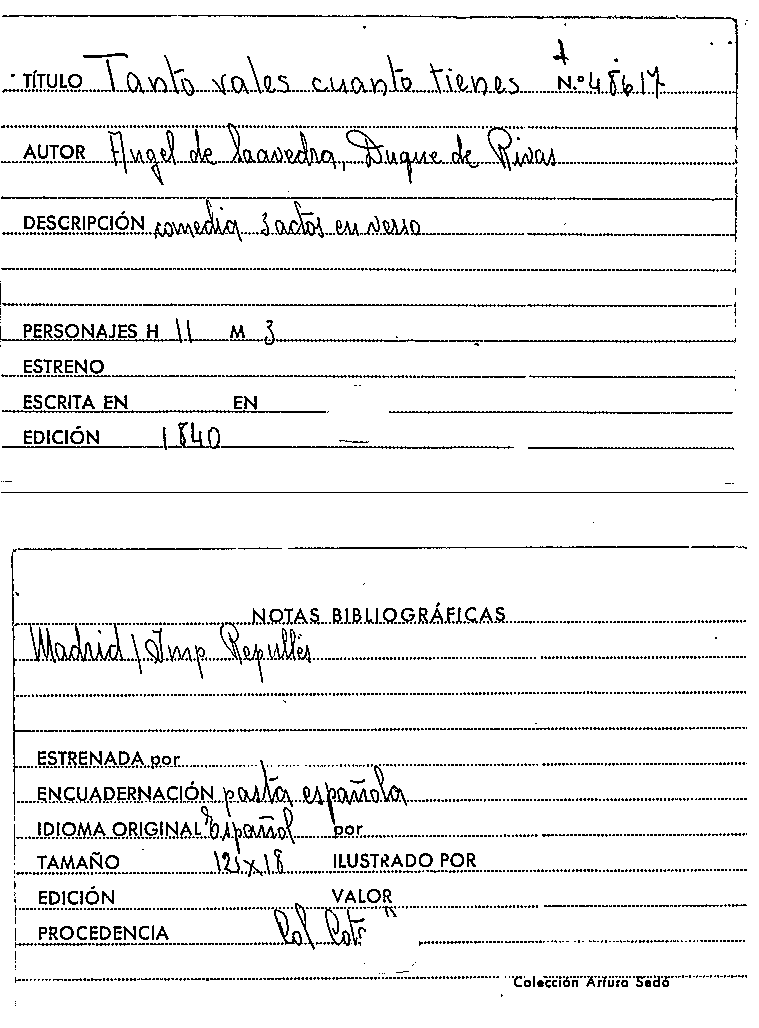 TÍTULO Tanto vales cuanto tienes N.º 48617
AUTOR Angel de Saavedra, Duque de Rivas
DESCRIPCIÓN comedia 3 actos en verso
PERSONAJES H 11 M 3
ESTRENO
ESCRITA EN EN
EDICIÓN 1840
NOTAS BIBLIOGRÁFICAS
Madrid / Imp Repullés
ESTRENADA por
ENCUADERNACIÓN pasta española
IDIOMA ORIGINAL Español por
TAMAÑO ILUSTRADO POR
EDICIÓN VALOR
PROCEDENCIA Col
Colección Arturo Sedó